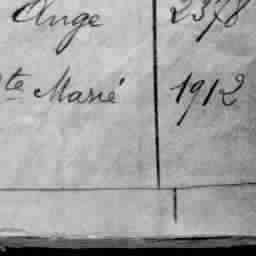 Ange 2378
te Marié 1912